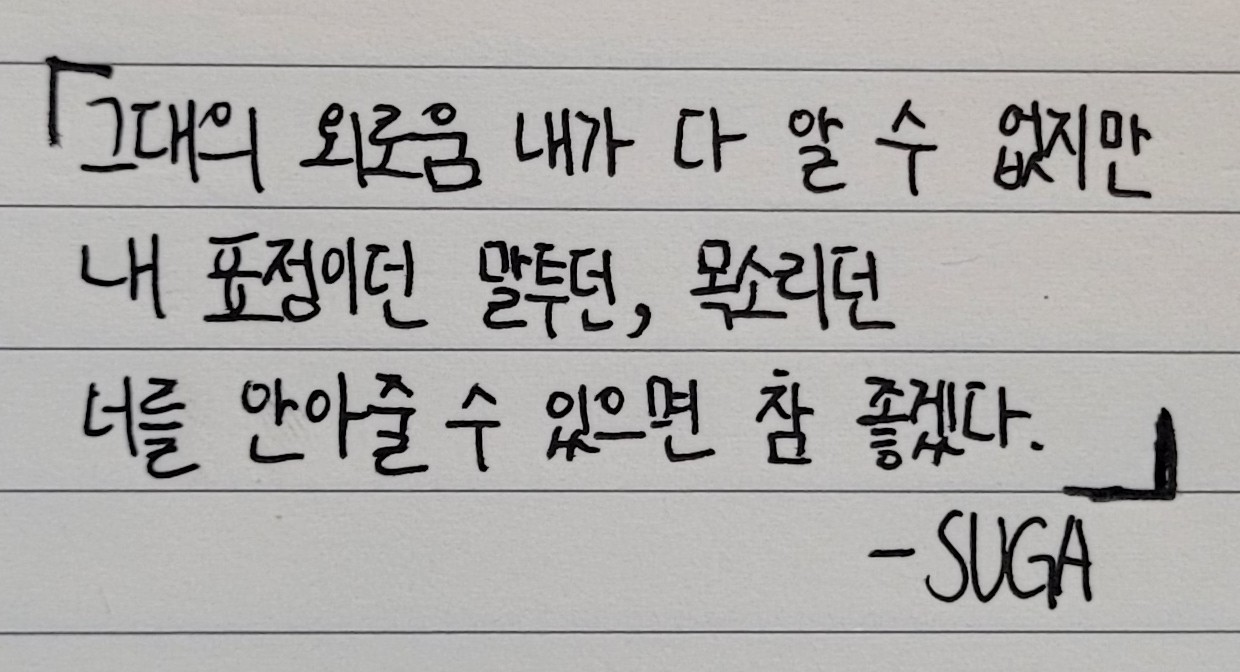 「그대의 외로움 내가 다 알 수 없지만
내 표정이던 말투던, 목소리던
너를 안아줄 수 있으면 참 좋겠다.」
-SUGA